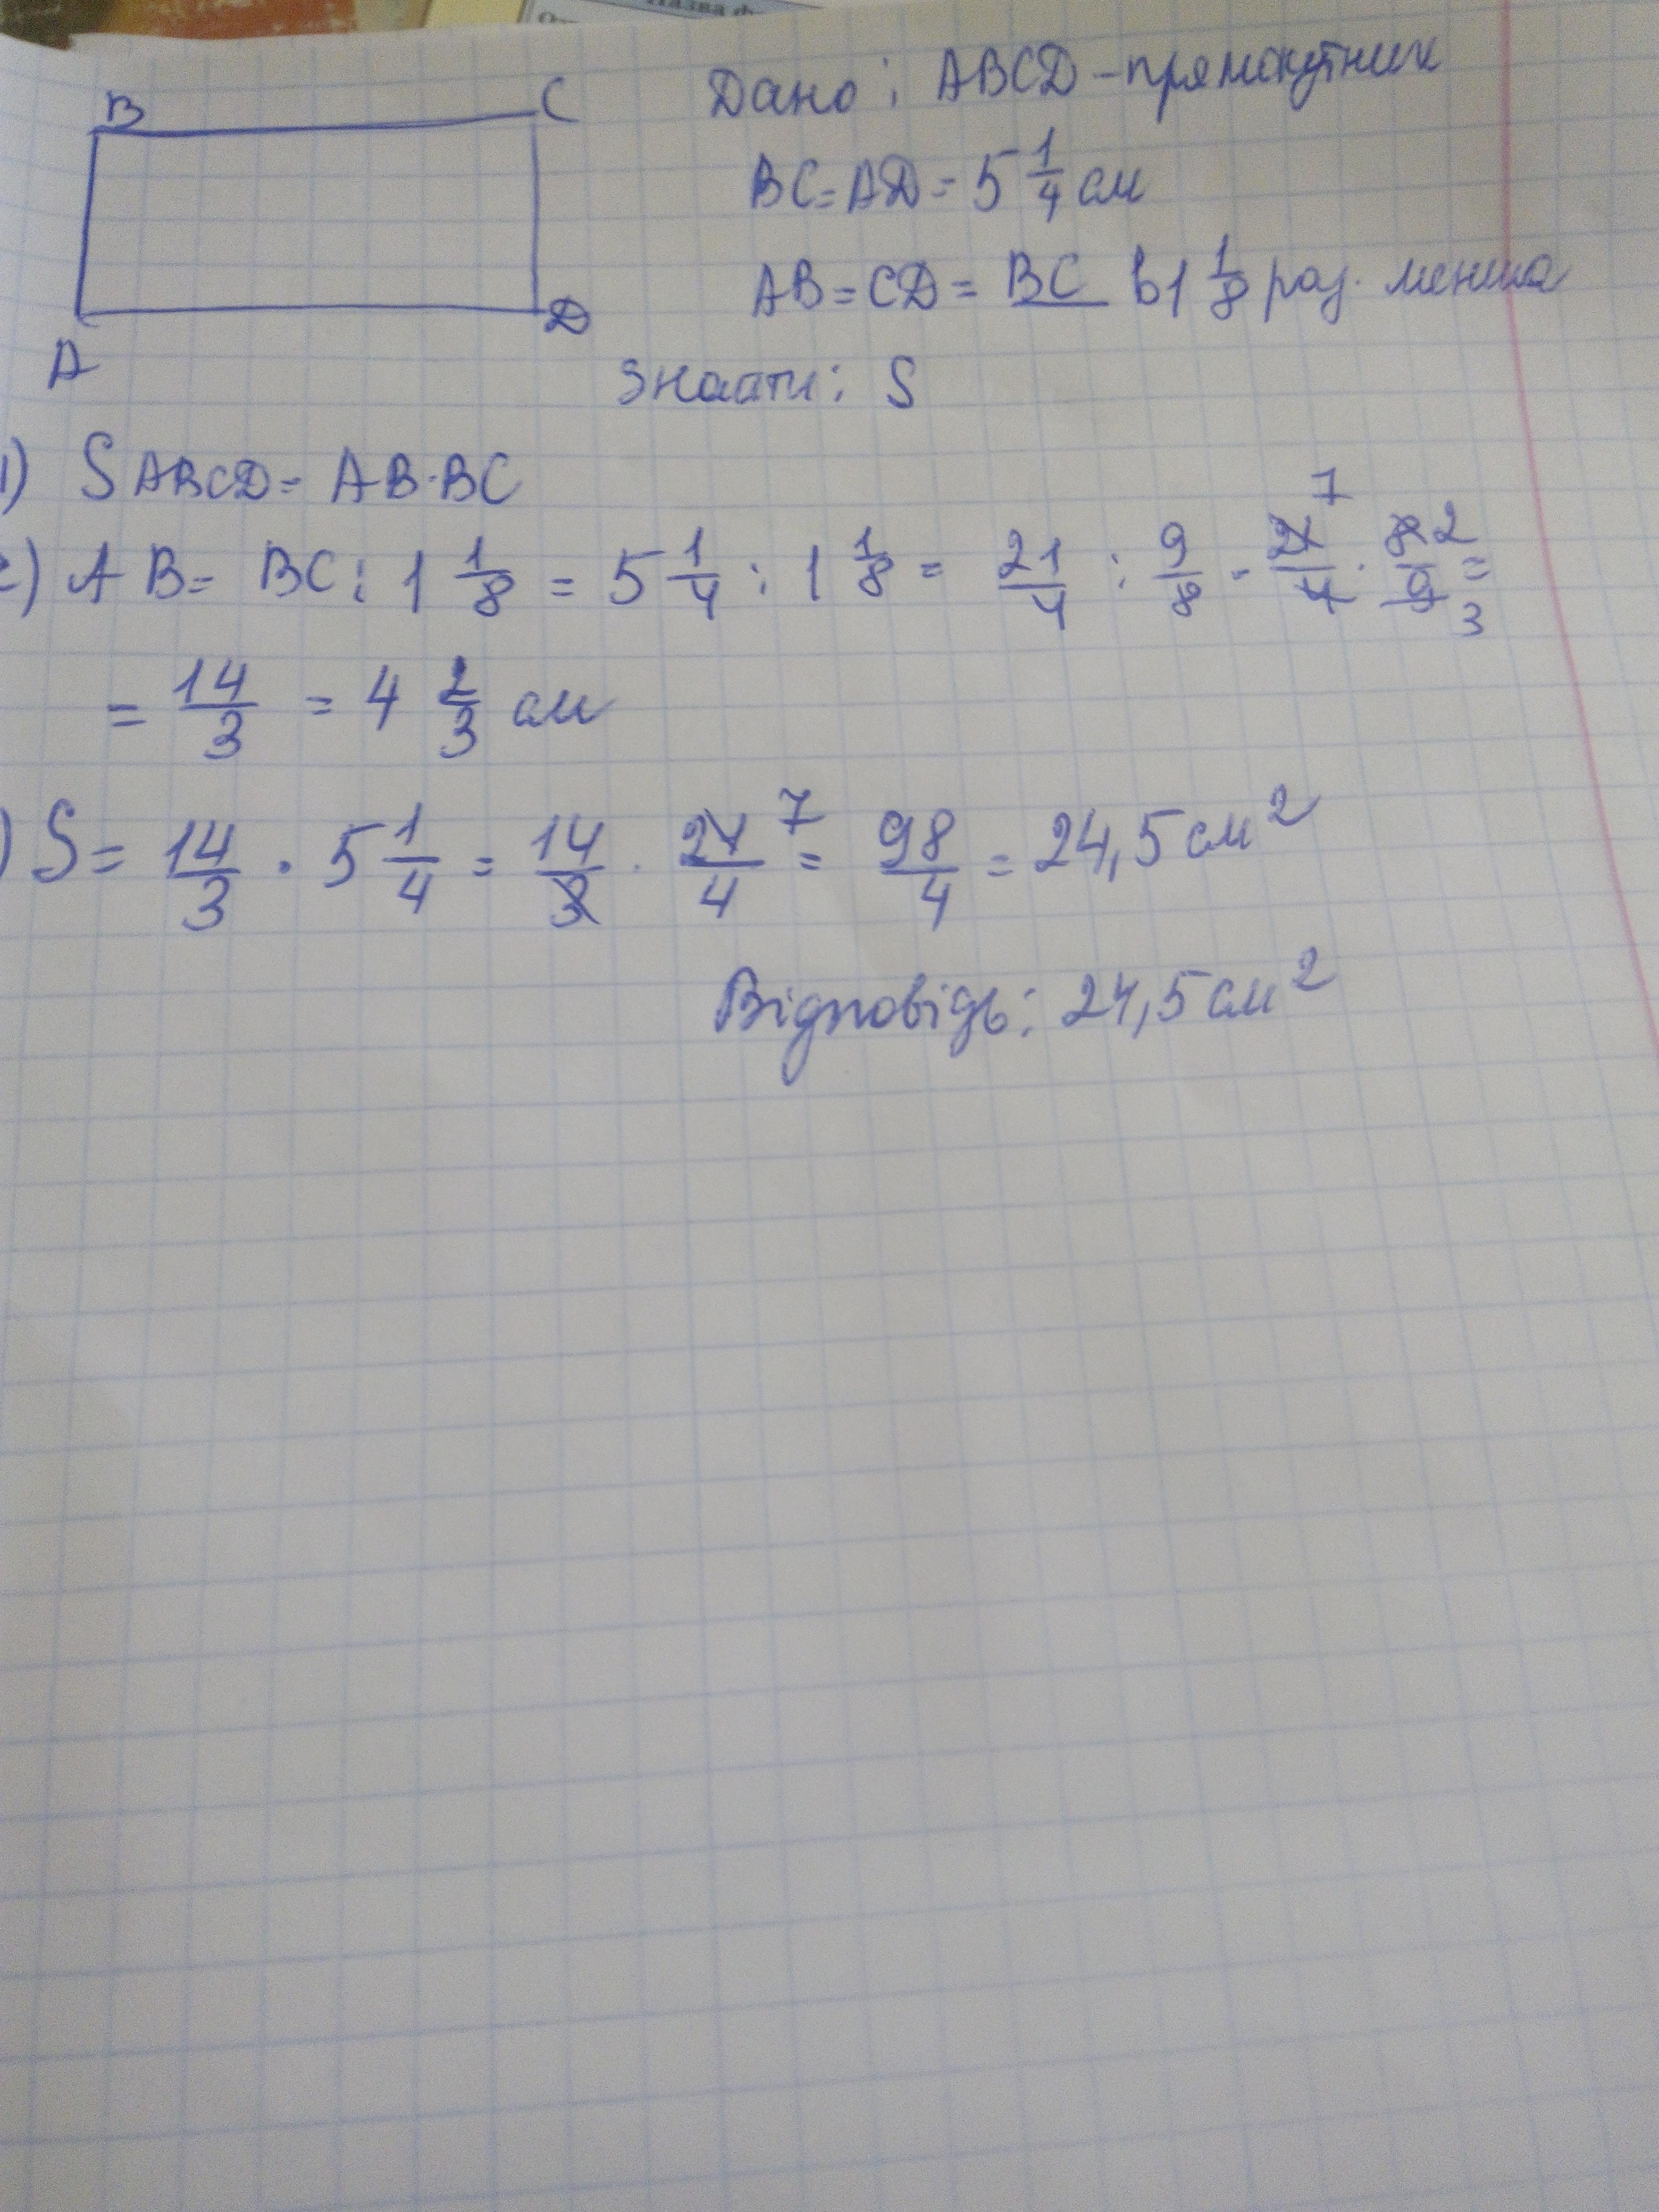 Назва ф
B C
A D
Дано: ABCD - прямокутник
BC = AD = 5 1/4 см
AB = CD = BC в 1 1/8 раз. менша
Знайти: S
1) S ABCD = AB · BC
2) AB = BC : 1 1/8 = 5 1/4 : 1 1/8 = 21/4 : 9/8 = 21/4 7 · 8/9 2 3 =
= 14/3 = 4 2/3 см
) S = 14/3 · 5 1/4 = 14/3 · 21/4 7 = 98/4 = 24,5 см²
Відповідь: 24,5 см²